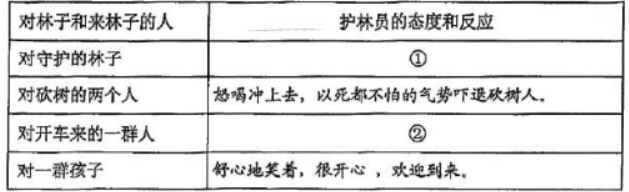 对林子和来林子的人 护林员的态度和反应
对守护的林子 ①
对砍树的两个人 怒喝冲上去，以死都不怕的气势吓退砍树人。
对开车来的一群人 ②
对一群孩子 舒心地笑着，很开心，欢迎到来。